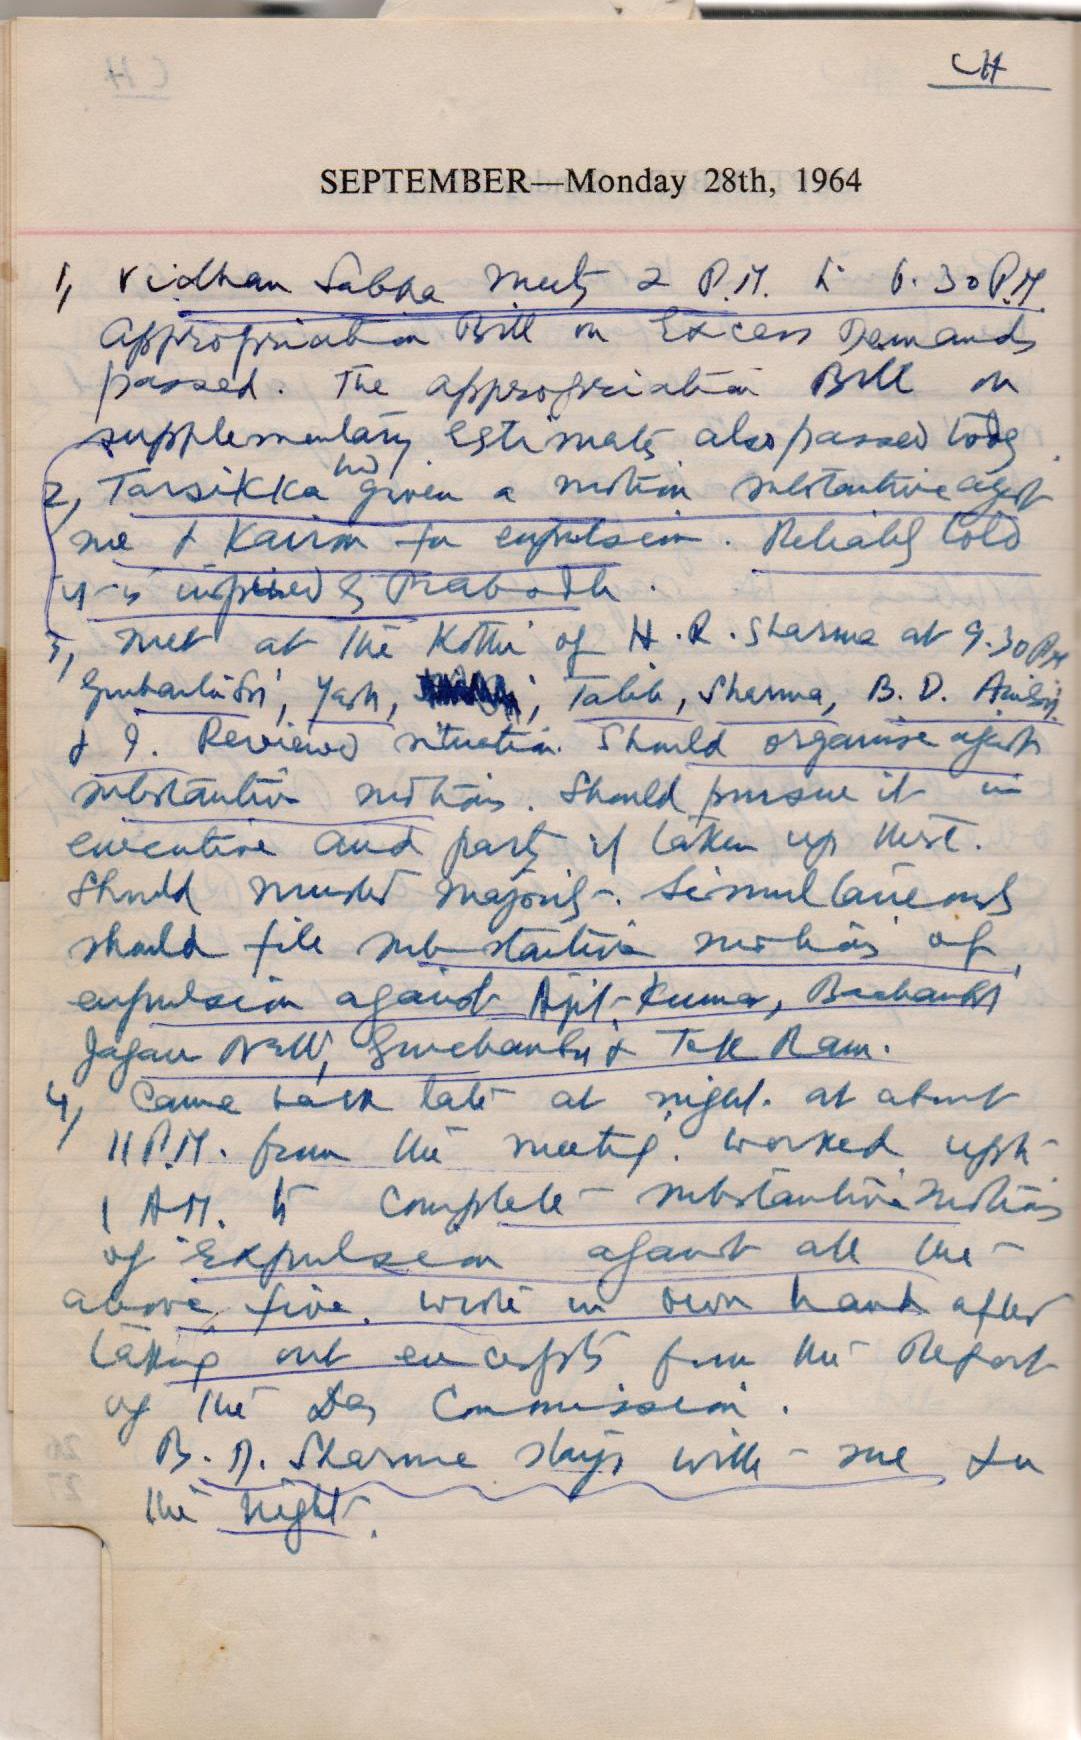 CH
SEPTEMBER—Monday 28th, 1964
1, Vidhan Sabha meets 2 P.M. to 6.30 P.M.
Appropriation Bill on Excess Demands
passed. The appropriation Bill on
supplementary Estimates also passed today.
2, Tarsikka had given a motion substantive agst
me & Kairon for expulsion. Reliably told
it is inspired by Prabodh.
3, Met at the Kothi of H.R. Sharma at 9.30 PM
Yash, Talib, Sharma, B. D.
& I. Reviewed situation. Should organise agst
substantive motion. Should pursue it in
executive and party if taken up there.
Should muster majority. Simultaneously
should file substantive motion of
expulsion against Ajit Kumar,
Jagan Nath, & Tek Ram.
4, Came back late at night at about
11 P.M. from the meeting. Worked upto
1 A.M. to complete substantive motions
of Expulsion against all the
above five. Wrote in own hand after
taking out excerpts from the Report
of the Das Commission.
B. D. Sharma stays with me for
the night.